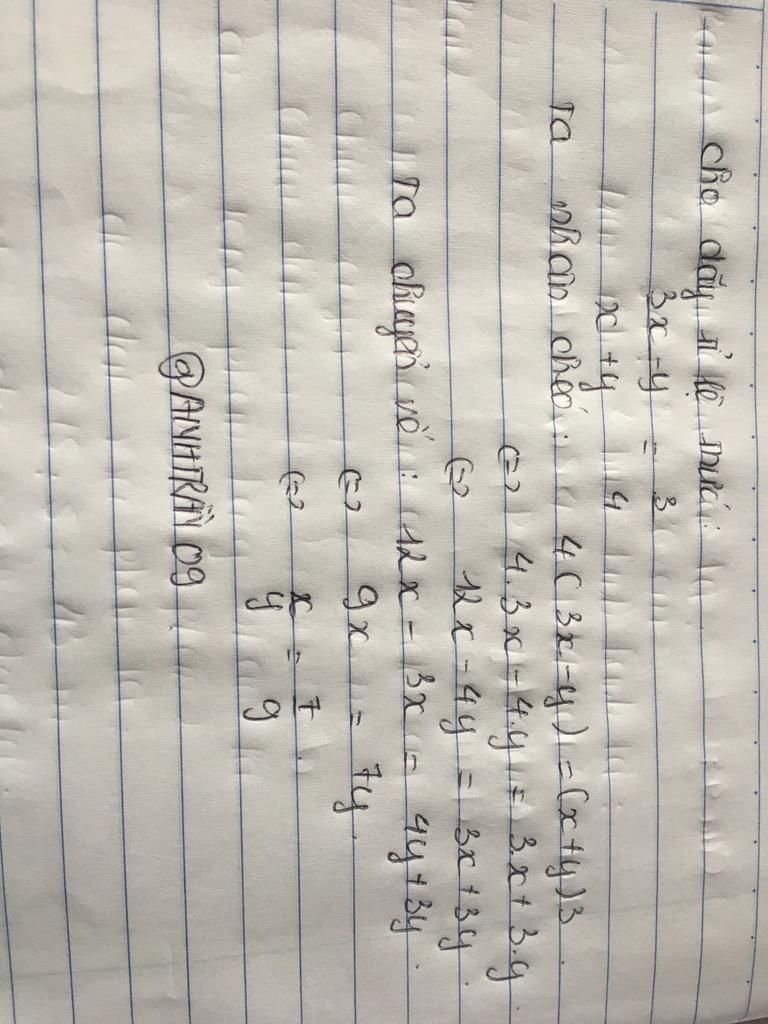 cho dãy tỉ lệ thức:
3x-y = 3
x+y 4
Ta nhân chéo: 4(3x-y) = (x+y)3.
(=) 4.3x-4.y = 3.x+3.y.
(=) 12x-4y = 3x+3y.
Ta chuyển vế: 12x-3x = 4y+3y.
(=) 9x = 7y.
(=) x = 7.
y 9
@ANHTRẦN 09